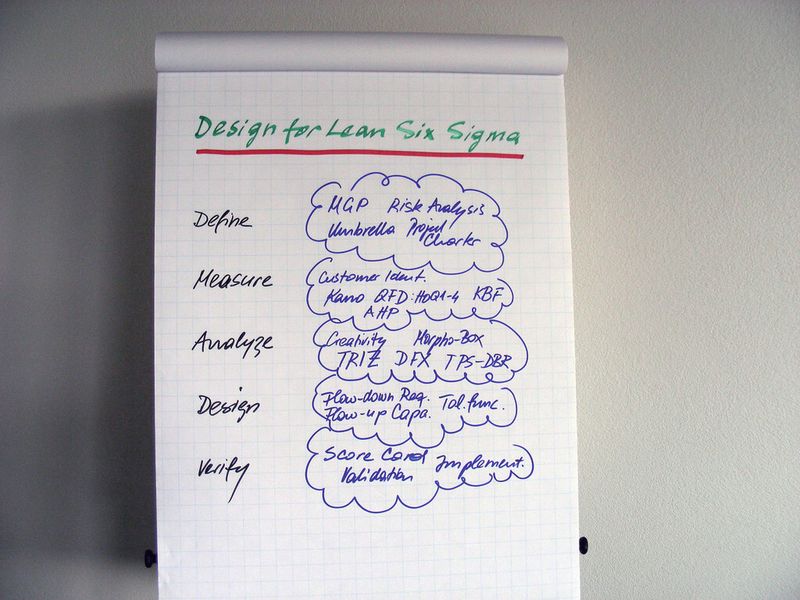 Design for Lean Six Sigma
Define
MGP Risk Analysis
Umbrella Project
Charter
Measure
Customer Ident.
Kano QFD:HoQ1-4 KBF
AHP
Analyze
Creativity Morpho-Box
TRIZ DFX TPS-DBR
Design
Flow-down Req. Tol.func.
Flow-up Capa.
Verify
Score Card Implement.
Validation